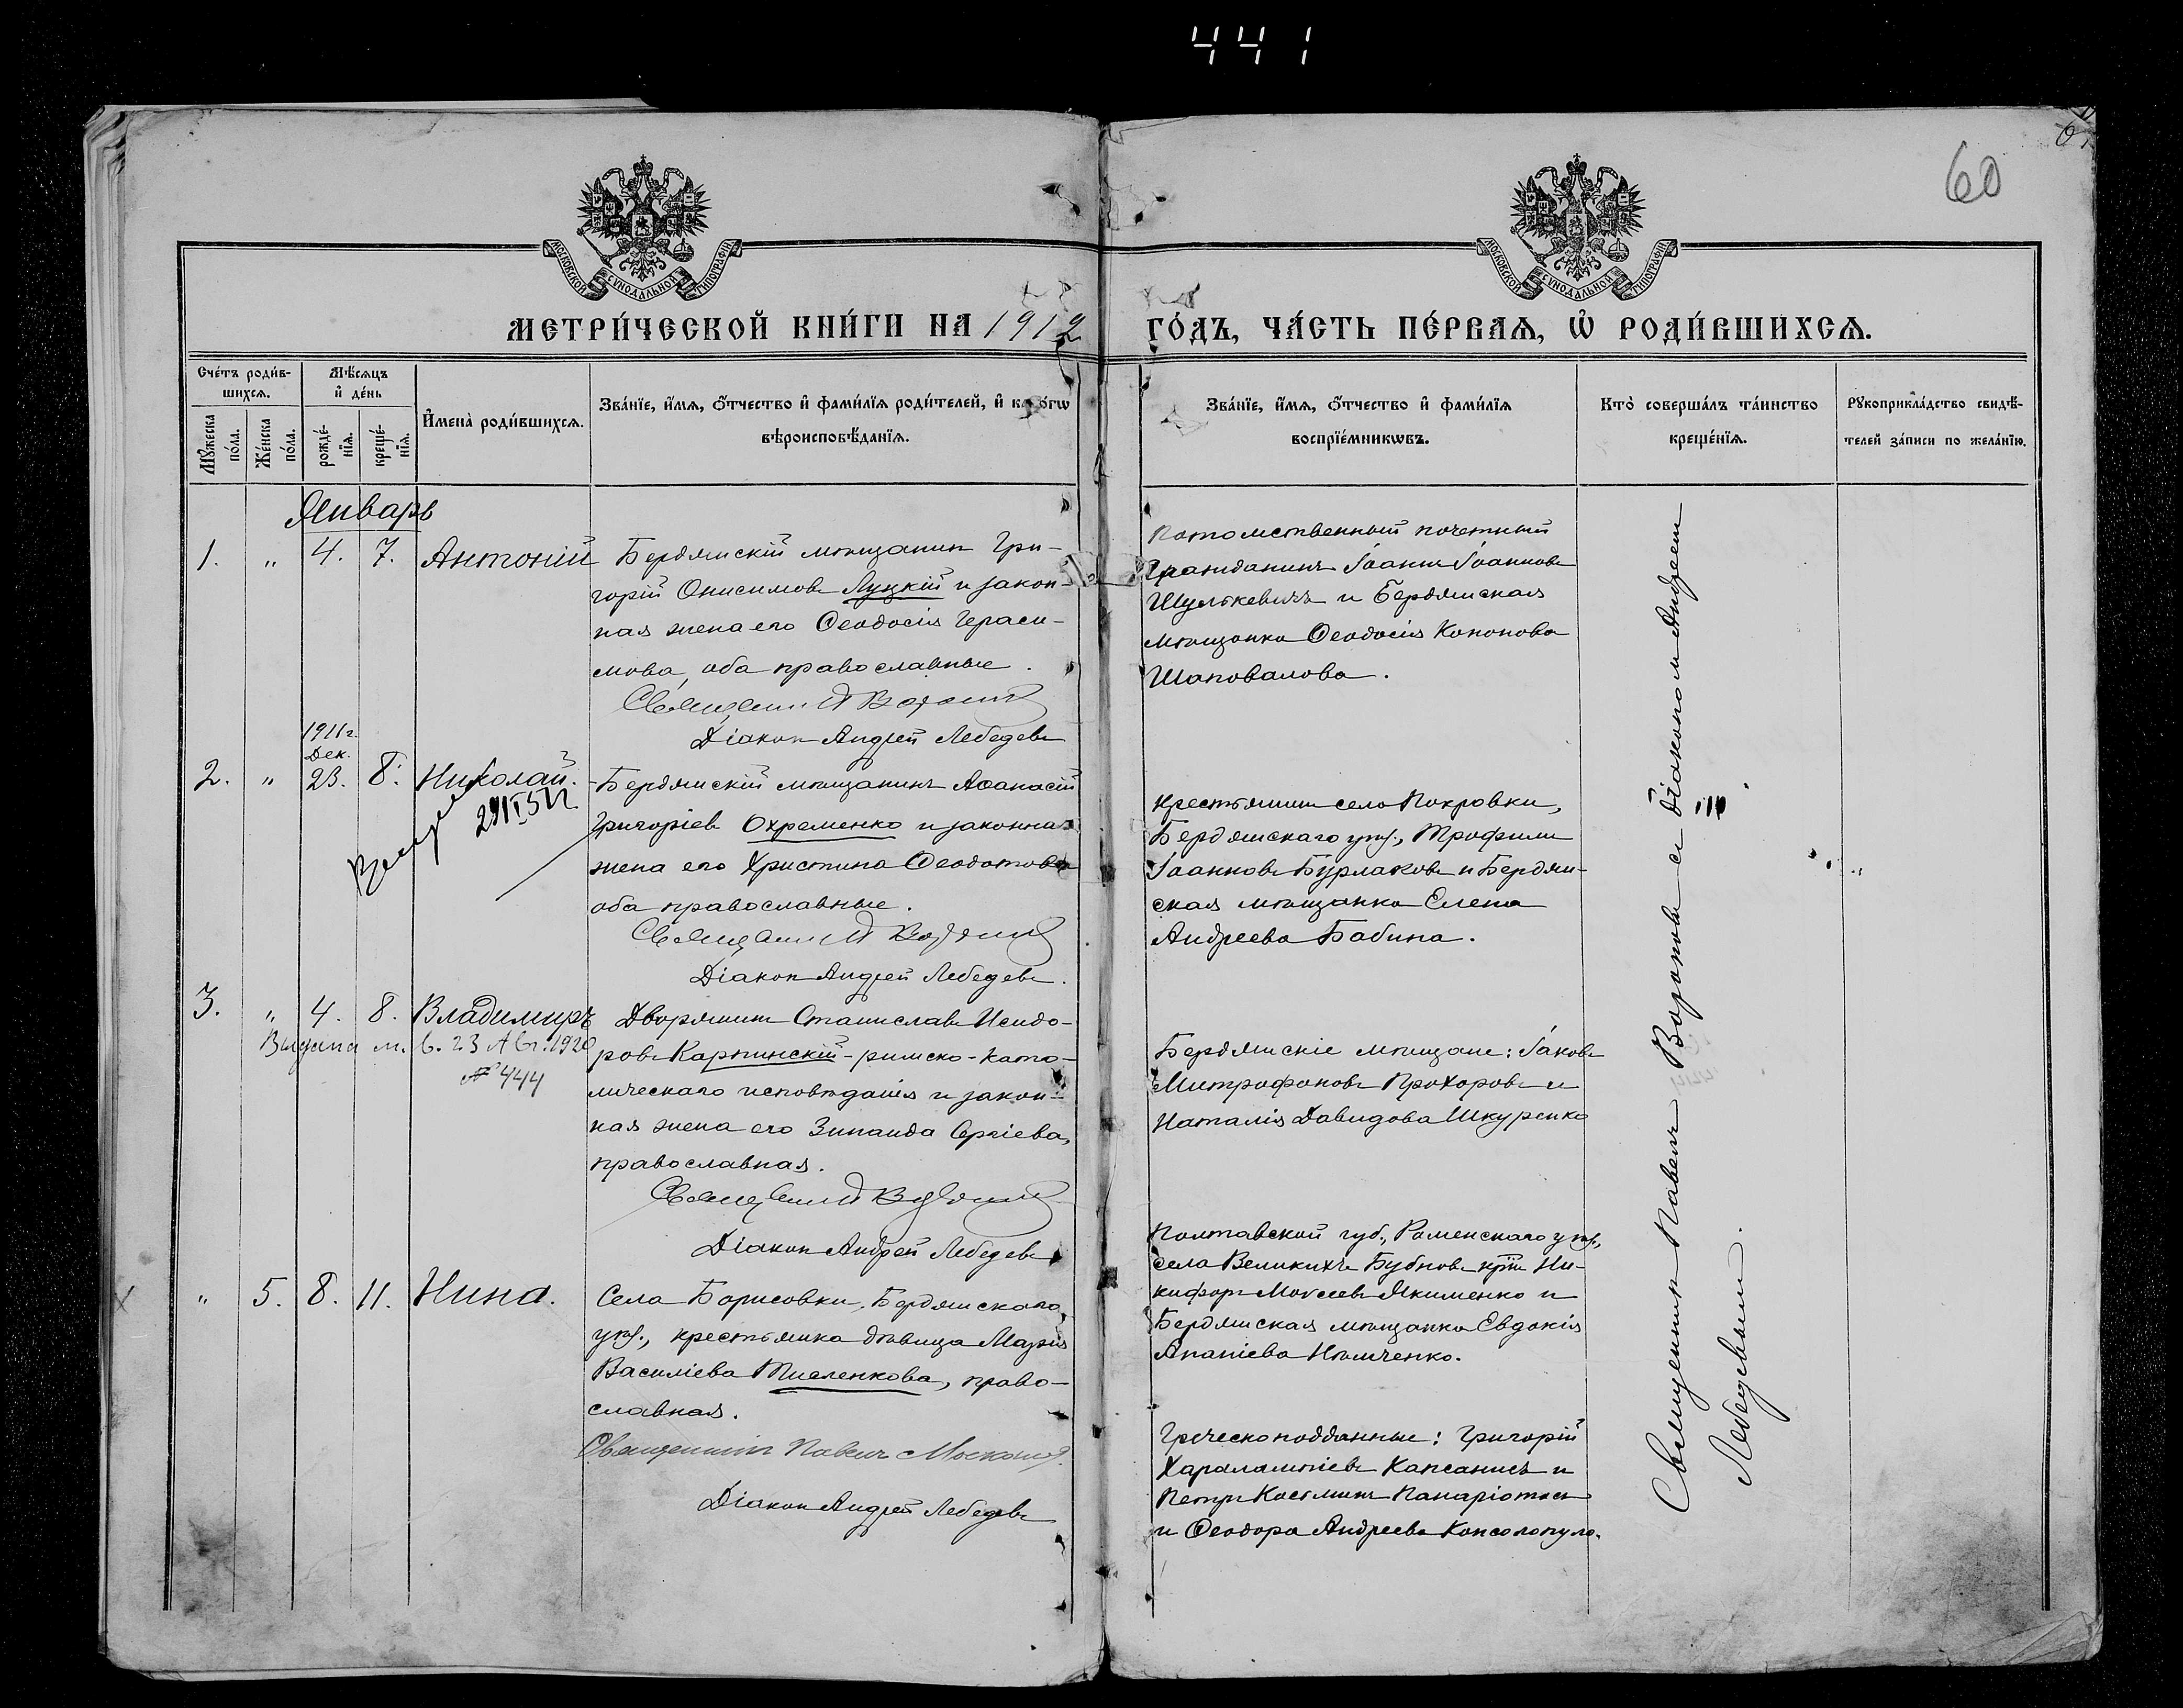 441
60
МОСКОВСКОЙ СѴНОДАЛЬНОЙ ТИПОГРАФІИ
МОСКОВСКОЙ СѴНОДАЛЬНОЙ ТИПОГРАФІИ
МЕТРИ́ЧЕСКОЙ КНИ́ГИ НА 1912 ГО́ДЪ, ЧА́СТЬ ПЕ́РВАЯ, Ѡ҆ РОДИ́ВШИХСЯ.
Сче́тъ роди́в-
шихся.
Мѣ́сяцъ
и҆ де́нь
Мꙋ́жеска
по́ла.
Же́нска
по́ла.
рожде́-
нїя.
креще́-
нїя.
И҆мена̀ роди́вшихся.
Зва́нїе, и҆́мя, ѻ҆́тчество и҆ фами́лїя роди́телей, и҆ како́гѡ
вѣроисповѣ́данїя.
Зва́нїе, и҆́мя, ѻ҆́тчество и҆ фами́лїя
воспрїе́мникѡвъ.
Кто̀ соверша́лъ та́инство
креще́нїя.
Рꙋкоприкла́дство свидѣ́-
телей за́писи по жела́нїю.
Январь
1. " 4. 7. Антоній
Бердянскій мѣщанин Гри-
горій Онисимовъ Луцкій и закон-
ная жена его Ѳеодосія Гераси-
мова, оба православные.
Діакон Андрей Лебедевъ
Потомственный почетный
гражданинъ Іоаннъ Іоанновъ
Шулькевичъ и Бердянская
мѣщанка Ѳеодосія Кононова
Шаповалова.
1911 г.
Дек.
2. " 23. 8. Николай.
29 I 51 г
Бердянскій мѣщанинъ Аѳанасій
Григоріевъ Охременко и законная
жена его Христина Ѳеодотова
оба православные.
Діакон Андрей Лебедевъ.
Крестьянин села Покровки,
Бердянскаго уѣз., Трофимъ
Іоанновъ Бурлаковъ и Бердян-
ская мѣщанка Елена
Андреева Бабина.
3. " 4. 8. Владимиръ
Выдана м. в. 23 Авг. 1920
№ 444
Дворянин Станиславъ Исидо-
ровъ Карпинскій - римско-като-
лическаго исповѣданія и закон-
ная жена его Зинаида Сергіева,
православная.
Діакон Андрей Лебедевъ
Бердянскіе мѣщане: Іаковъ
Митрофановъ Прохоровъ и
Наталія Давидова Шкуренко
" 5. 8. 11. Нина.
Села Борисовки, Бердянскаго
уѣз., крестьянка дѣвица Марія
Василіева Тиеленкова, право-
славная.
Священникъ Павелъ
Діакон Андрей Лебедевъ
Полтавской губ., Роменскаго уѣз.,
села Великихъ Бубновъ крн. Ни-
кифоръ Моисеевъ Якименко и
Бердянская мѣщанка Евдокія
Ананіева Нѣмченко.
Греческоподданные: Григорій
Харалампіевъ Капсанисъ и
Петръ Костминъ Панаріотисъ
и Ѳеодора Андреева Консолопуло.
Священникъ Павелъ Вороновъ с діаконом Андреем
Лебедевым.